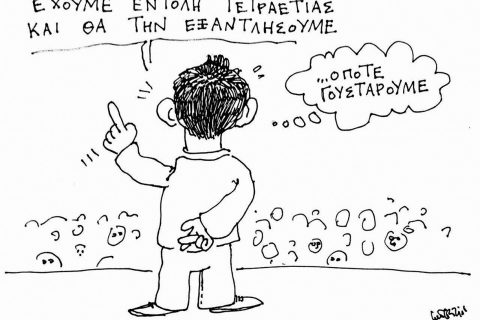 ΕΧΟΥΜΕ ΕΝΤΟΛΗ ΤΕΤΡΑΕΤΙΑΣ
ΚΑΙ ΘΑ ΤΗΝ ΕΞΑΝΤΛΗΣΟΥΜΕ
...ΟΠΟΤΕ
ΓΟΥΣΤΑΡΟΥΜΕ